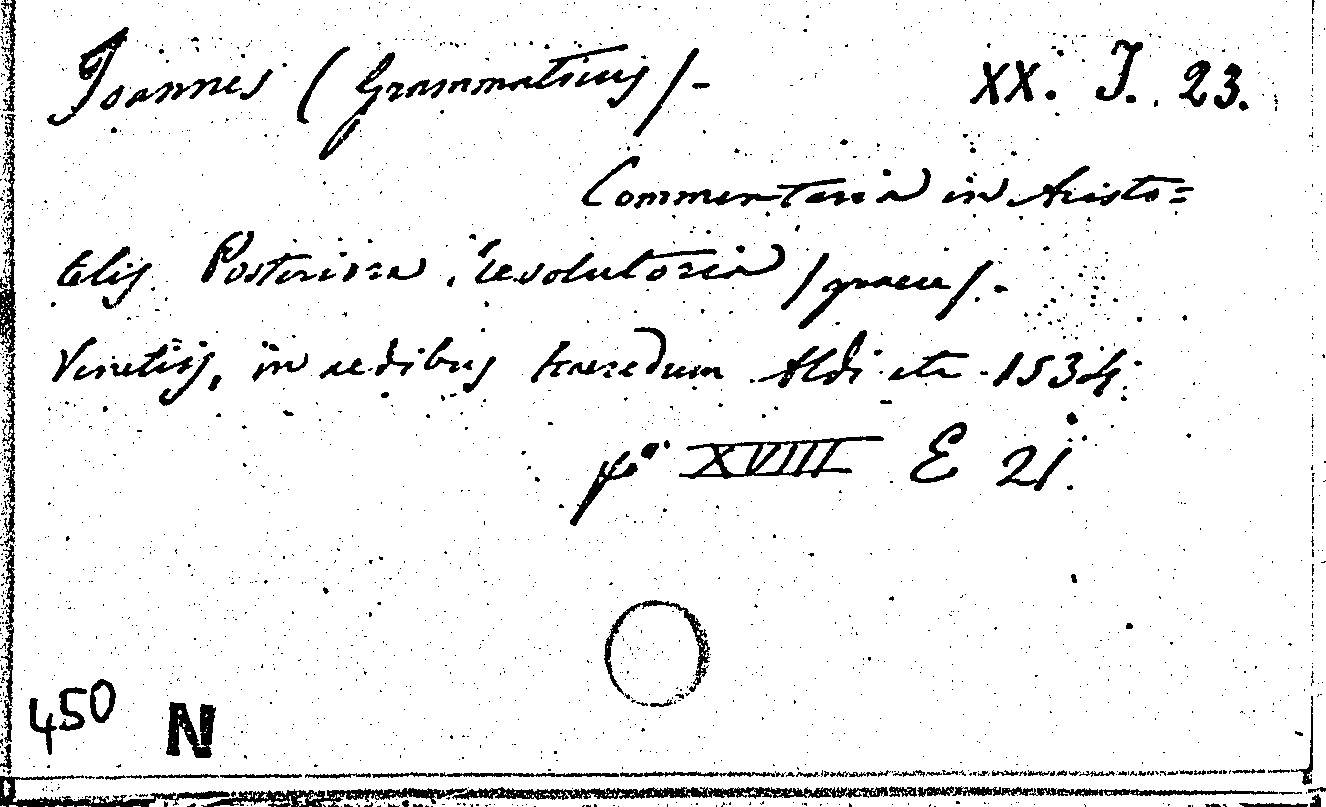 Joannes (Grammaticus) - XX. J. 23.
Commentaria in Aristo=
telis Posteriora resolutoria (graece). -
Venetiis, in aedibus haeredum Aldi etc 1534.
fo XVIII E 21.
450 N